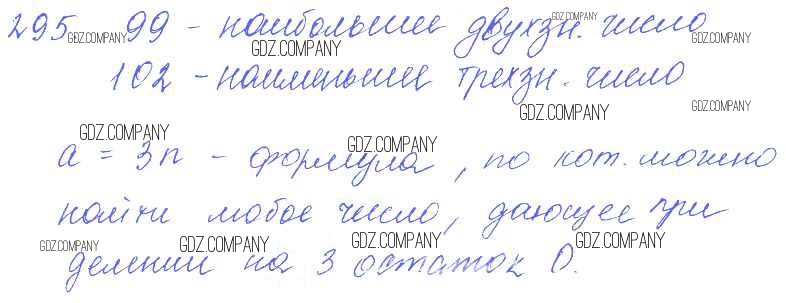 295 99 - наибольшее двухзн. число
102 - наименьшее трехзн. число
a = 3n - формула, по кот. можно
найти любое число, дающее при
делении на 3 остаток 0.
GDZ.COMPANY
GDZ.COMPANY
GDZ.COMPANY
GDZ.COMPANY
GDZ.COMPANY
GDZ.COMPANY
GDZ.COMPANY
GDZ.COMPANY
GDZ.COMPANY
GDZ.COMPANY
GDZ.COMPANY
GDZ.COMPANY